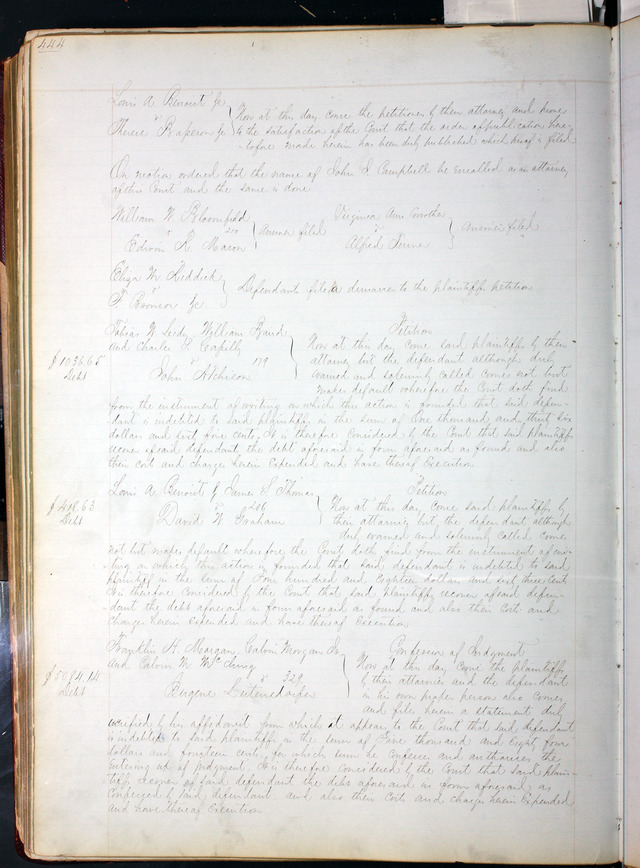 444
Louis A Benoist &c
vs
Therese Raperson &c } Now at this day come the petitioners by their attorney and prove
to the satisfaction of the Court that the order of publication here-
-tofore made herein has been duly published which proof is filed
On motion ordered that the name of John S Campbell be enrolled as an attorney
of this Court and the same is done
William W. Bloomfield
vs 210
Edwin R. Mason } answer filed
Virginia Ann
vs
Alfred } answer filed
Eliza M Reddick
vs
F Bronson &c } Defendant files a demurrer to the plaintiffs petition
$1036.65
Debt
William Baird
and Charles
vs 179
John Atchison
Petition
Now at this day come said plaintiffs by their
attorney but the defendant although duly
warned and solemnly called comes not but
makes default wherefore the Court doth find
from the instrument of writing on which this action is founded that said defen-
dant is indebted to said plaintiffs in the sum of One thousand and thirty six
dollars and sixty five cents. It is therefore considered by the Court that said plaintiffs
recover of said defendant the debt aforesaid in form aforesaid as found and also
their costs and charges herein Expended and have thereof Execution
$418.63
Debt
Louis A Benoist & James S Thomas
vs 206
David W Graham
Petition
Now at this day come said plaintiffs by
their attorney but the defendant although
duly warned and solemnly called comes
not but makes default wherefore the Court doth find from the instrument of wri-
ting on which this action is founded that said defendant is indebted to said
plaintiffs in the sum of Four hundred and Eighteen dollars and sixty three cents
It is therefore considered by the Court that said plaintiffs recover of said defen-
dant the debt aforesaid in form aforesaid as found and also their costs and
charges herein expended and have thereof Execution
$5084.14
Debt
Franklin H. Morgan, Calvin Morgan Jr
and Calvin M McClung
vs 329
Eugene
Confession of Judgment
Now at this day come the plaintiffs
by their attornies and the defendant
in his own proper person also comes
and files herein a statement duly
verified by his affidavit from which it appears to the Court that said defendant
is indebted to said plaintiffs in the sum of Five thousand and Eighty four
dollars and fourteen cents, for which sum he confesses and authorises the
entering up of judgment, It is therefore considered by the Court that said plain-
tiffs recover of said defendant the debt aforesaid in form aforesaid as
confessed by said defendant and also their costs and charges herein Expended
and have thereof Execution